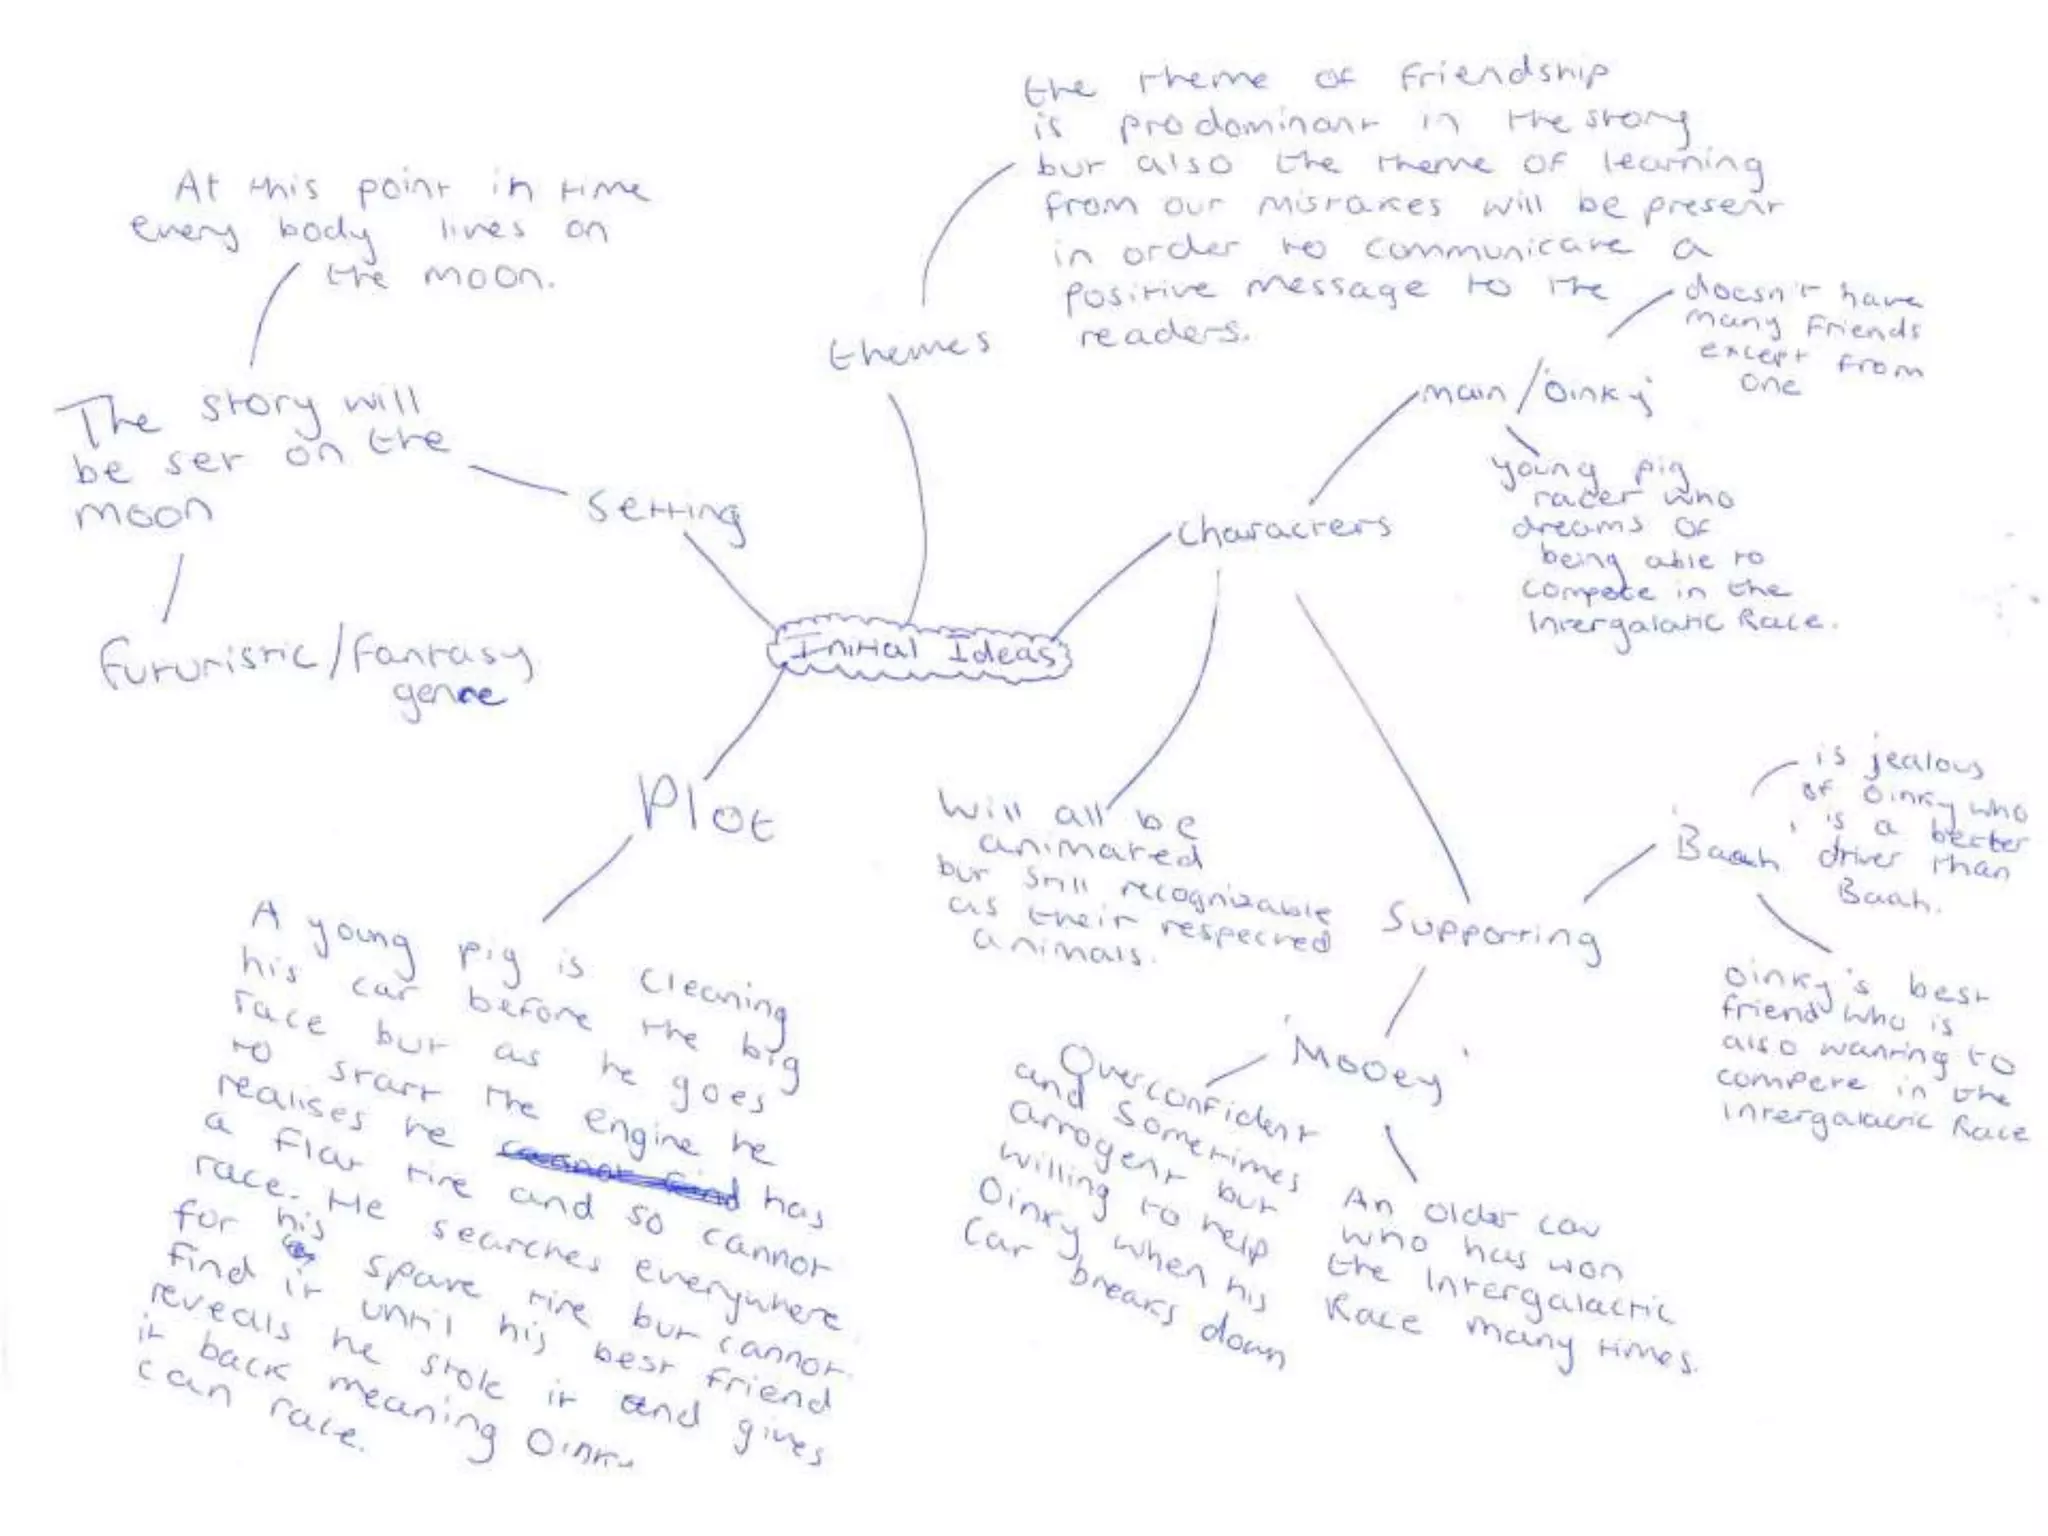 the theme of friendship
is prodominant in the story
but also the theme of learning
from our mistakes will be present
in order to communicate a
positive message to the
readers.
themes
At this point in time
every body lives on
the moon.
The story will
be set on the
moon
Setting
futuristic/fantasy
genre
Initial Ideas
characters
main/'Oinky'
doesn't have
many friends
except from
one
young pig
racer who
dreams of
being able to
compete in the
Intergalatic Race.
Will all be
animated
but still recognizable
as their respected
animals.
Supporting
'Baah'
is jealous
of Oinky who
is a better
driver than
Baah.
Oinky's best
friend who is
also wanting to
compete in the
intergalactic Race
'Mooey'
Overconfident
and sometimes
arrogent but
willing to help
Oinky when his
car breaks down
An older cow
who has won
the Intergalactic
Race many times.
Plot
A young pig is cleaning
his car before the big
race but as he goes
to start the engine he
realises he cannot find has
a flat tire and so cannot
race. He searches everywhere
for his spare tire but cannot
find it until his best friend
reveals he stole it and gives
it back meaning Oinky
can race.